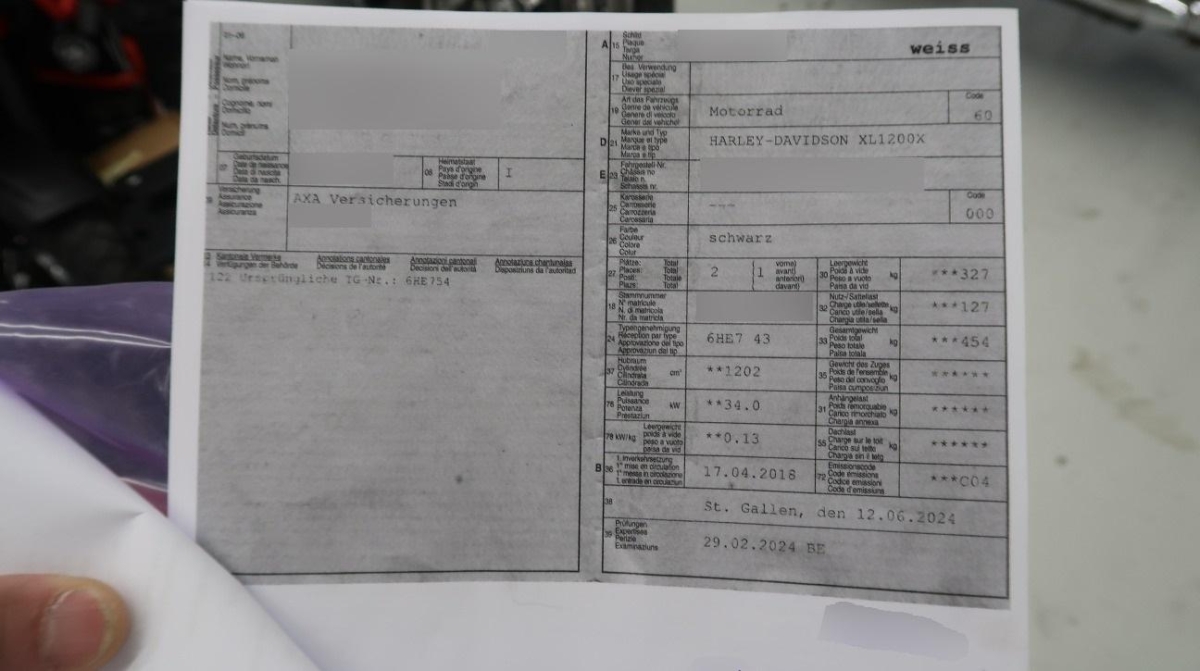 01-06
Name, Vornamen
Wohnort
Nom, prénoms
Domicile
Cognome, nomi
Domicilio
Num, prenums
Domicil
07
Geburtsdatum
Date de naissance
Data di nascita
Data da nasch.
08
Heimatstaat
Pays d'origine
Paese d'origine
Stadi d'origin
I
Versicherung
Assurance
Assicurazione
Assicuranza
AXA Versicherungen
Kantonale Vermerke
Verfügungen der Behörde
Annotations cantonales
Décisions de l'autorité
Annotazioni cantonali
Decisioni dell'autorità
Annotaziuns chantunalas
Disposiziuns da l'autoritad
122 Ursprüngliche TG-Nr.: 6HE754
A 15
Schild
Plaque
Targa
Numer
weiss
17
Bes. Verwendung
Usage spécial
Uso speciale
Diever spezial
19
Art des Fahrzeugs
Genre de véhicule
Genere di veicolo
Gener dal vehichel
Motorrad
Code
60
D 21
Marke und Typ
Marque et type
Marca e tipo
Marca e tip
HARLEY-DAVIDSON XL1200X
E 23
Fahrgestell-Nr.
Châssis no
Telaio n.
Schassis nr.
25
Karosserie
Carrosserie
Carrozzeria
Carrossaria
---
Code
000
26
Farbe
Couleur
Colore
Colur
schwarz
27
Plätze: Total
Places: Total
Posti: Totale
Plazs: Total
2
1
vorne)
avant)
anteriori)
davant)
30
Leergewicht
Poids à vide
Peso a vuoto
Paisa da vid
kg
***327
18
Stammnummer
N° matricule
N. di matricola
Nr. da matricla
32
Nutz-/Sattellast
Charge utile/sellette
Carico utile/sella
Chargia utila/sella
kg
***127
24
Typengenehmigung
Réception par type
Approvazione del tipo
Approvaziun dal tip
6HE7 43
33
Gesamtgewicht
Poids total
Peso totale
Paisa totala
kg
***454
37
Hubraum
Cylindrée
Cilindrata
Cilindrada
cm³
**1202
35
Gewicht des Zuges
Poids de l'ensemble
Peso del convoglio
Paisa cumposiziun
kg
******
76
Leistung
Puissance
Potenza
Prestaziun
kW
**34.0
31
Anhängelast
Poids remorquable
Carico rimorchiato
Chargia annexa
kg
******
78 kW/kg
Leergewicht
poids à vide
peso a vuoto
paisa da vid
**0.13
55
Dachlast
Charge sur le toit
Carico sul tetto
Chargia sin il tetg
kg
******
B 36
1. Inverkehrsetzung
1re mise en circulation
1a messa in circolazione
1. entrada en circulaziun
17.04.2018
72
Emissionscode
Code émissions
Codice emissioni
Code d'emissiuns
***C04
38
St. Gallen, den 12.06.2024
39
Prüfungen
Expertises
Perizie
Examinaziuns
29.02.2024 BE